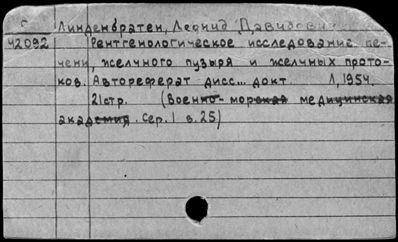 Б Линденбратен, Леонид Давидович
42092 Рентгенологическое исследование пе-
чени, желчного пузыря и желчных прото-
ков. Автореферат дисс... докт. Л, 1954.
21стр. (Военно-морская медицинская
академия. Сер. 1 в. 25)